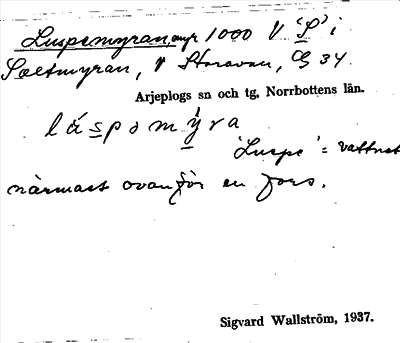 Luspemyran, myr 1000 V 'S' i
Saltmyran, V Storavan, G 34.
Arjeplogs sn och tg, Norrbottens län.
láspəmy̆ra
'Luspe' = vattnet
närmast ovanför en fors.
Sigvard Wallström, 1937.